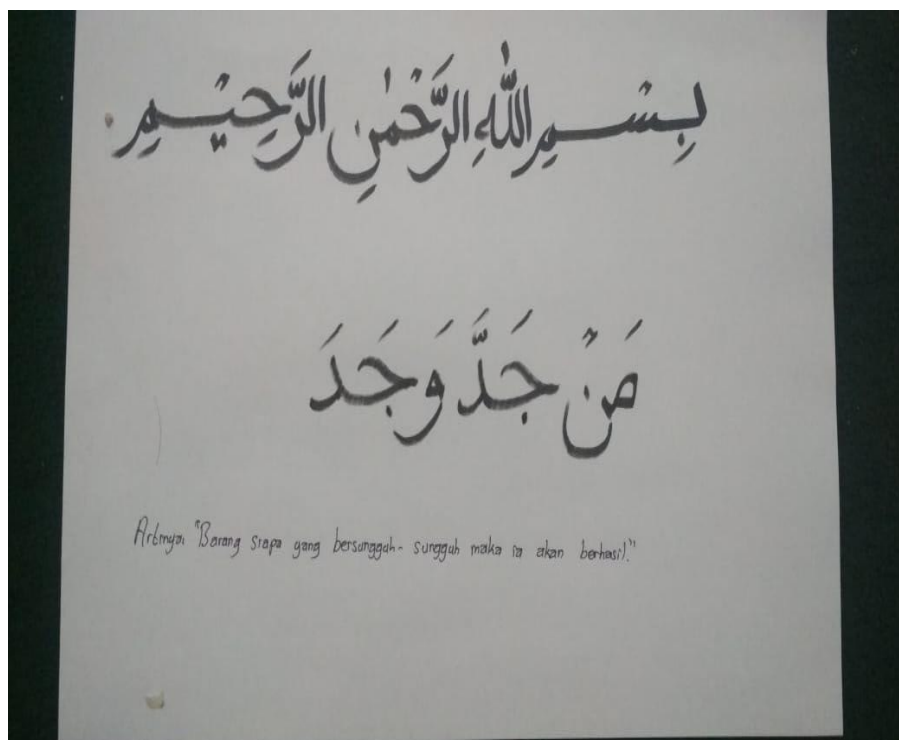 بِسْمِ اللّٰهِ الرَّحْمٰنِ الرَّحِيْمِ
مَنْ جَدَّ وَجَدَ
Artinya: "Barang siapa yang bersunggah-sungguh maka ia akan berhasil."